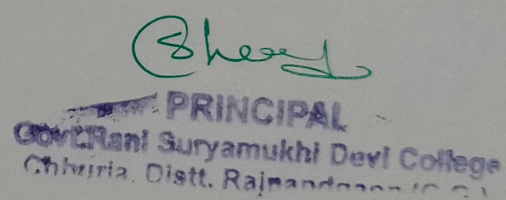 PRINCIPAL
Govt. Rani Suryamukhi Devi College
Chhuria, Distt. Rajnandgaon (C.G.)